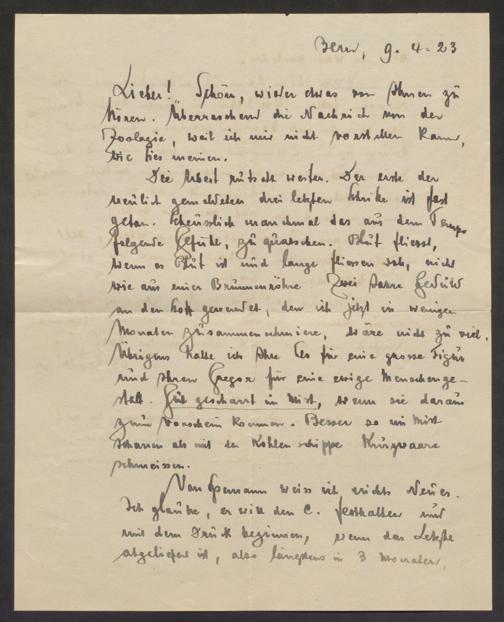 Bern, 9. 4. 23
Lieber! Schön, wieder etwas von Ihnen zu
hören. Überraschend die Nachricht von der
Zoologie, weil ich mir nicht vorstellen kann,
wie Sie's meinen.
Die Arbeit rutscht weiter. Der erste der
neulich gemeldeten drei letzten ist fast
getan. Scheusslich manchmal das aus dem Tempo
folgende Gefühl, zu quatschen. Blut fliesst,
wenn es Blut ist und lange fliessen soll, nicht
wie aus einer Brunnenröhre. Zwei Jahre Geduld
an den Stoff gewendet, den ich jetzt in wenigen
Monaten zusammenschmiere, wäre nicht zu viel.
Übrigens halte ich Ihre für eine grosse Figur
und Ihren Gregor für eine ewige Menschenge-
stalt. Gut gescharrt im Mist, wenn sie daraus
zum Vorschein kommen. Besser so im Mist
scharren als mit der Kohlenschippe Kurzware
schmeissen.
Von weiss ich nichts Neues.
Ich glaube, er will den C. festhalten und
mit dem Druck beginnen, wenn das Letzte
abgeliefert ist, also längstens in 3 Monaten.